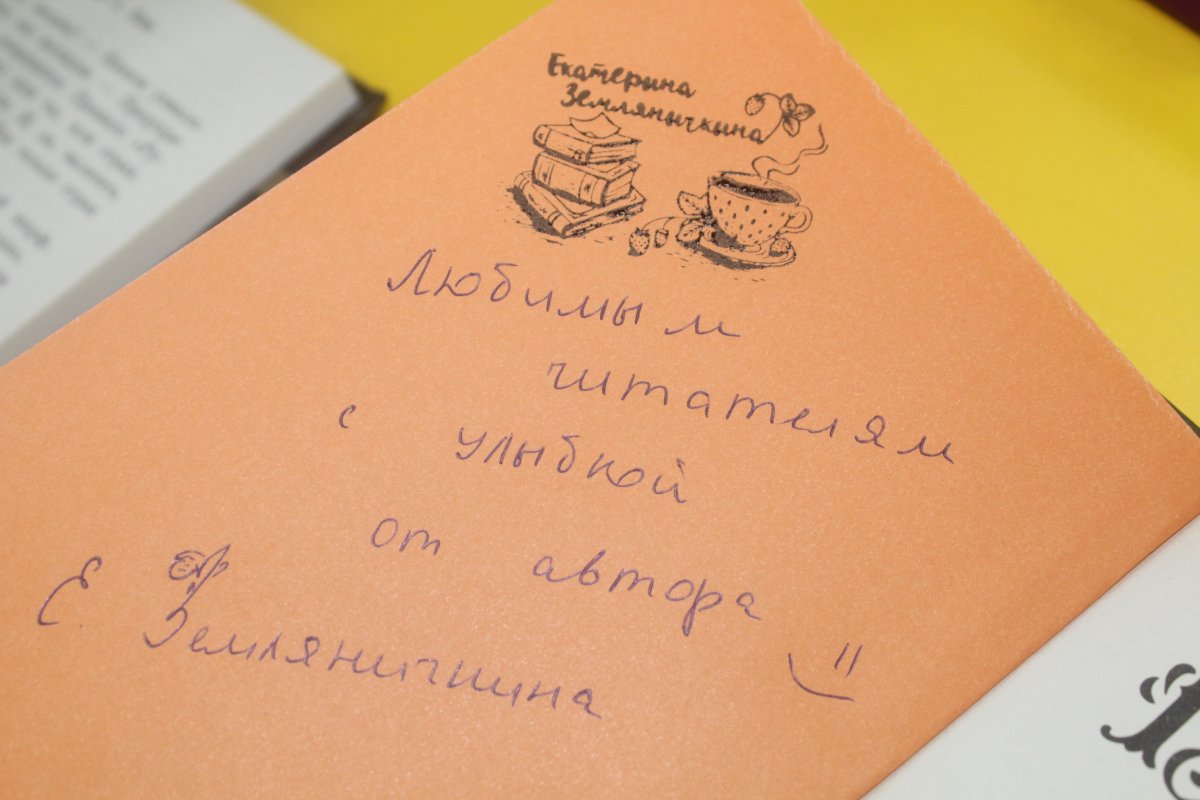 Екатерина
Земляничкина
Любимым
читателям
с улыбкой
от автора
Е. Земляничкина